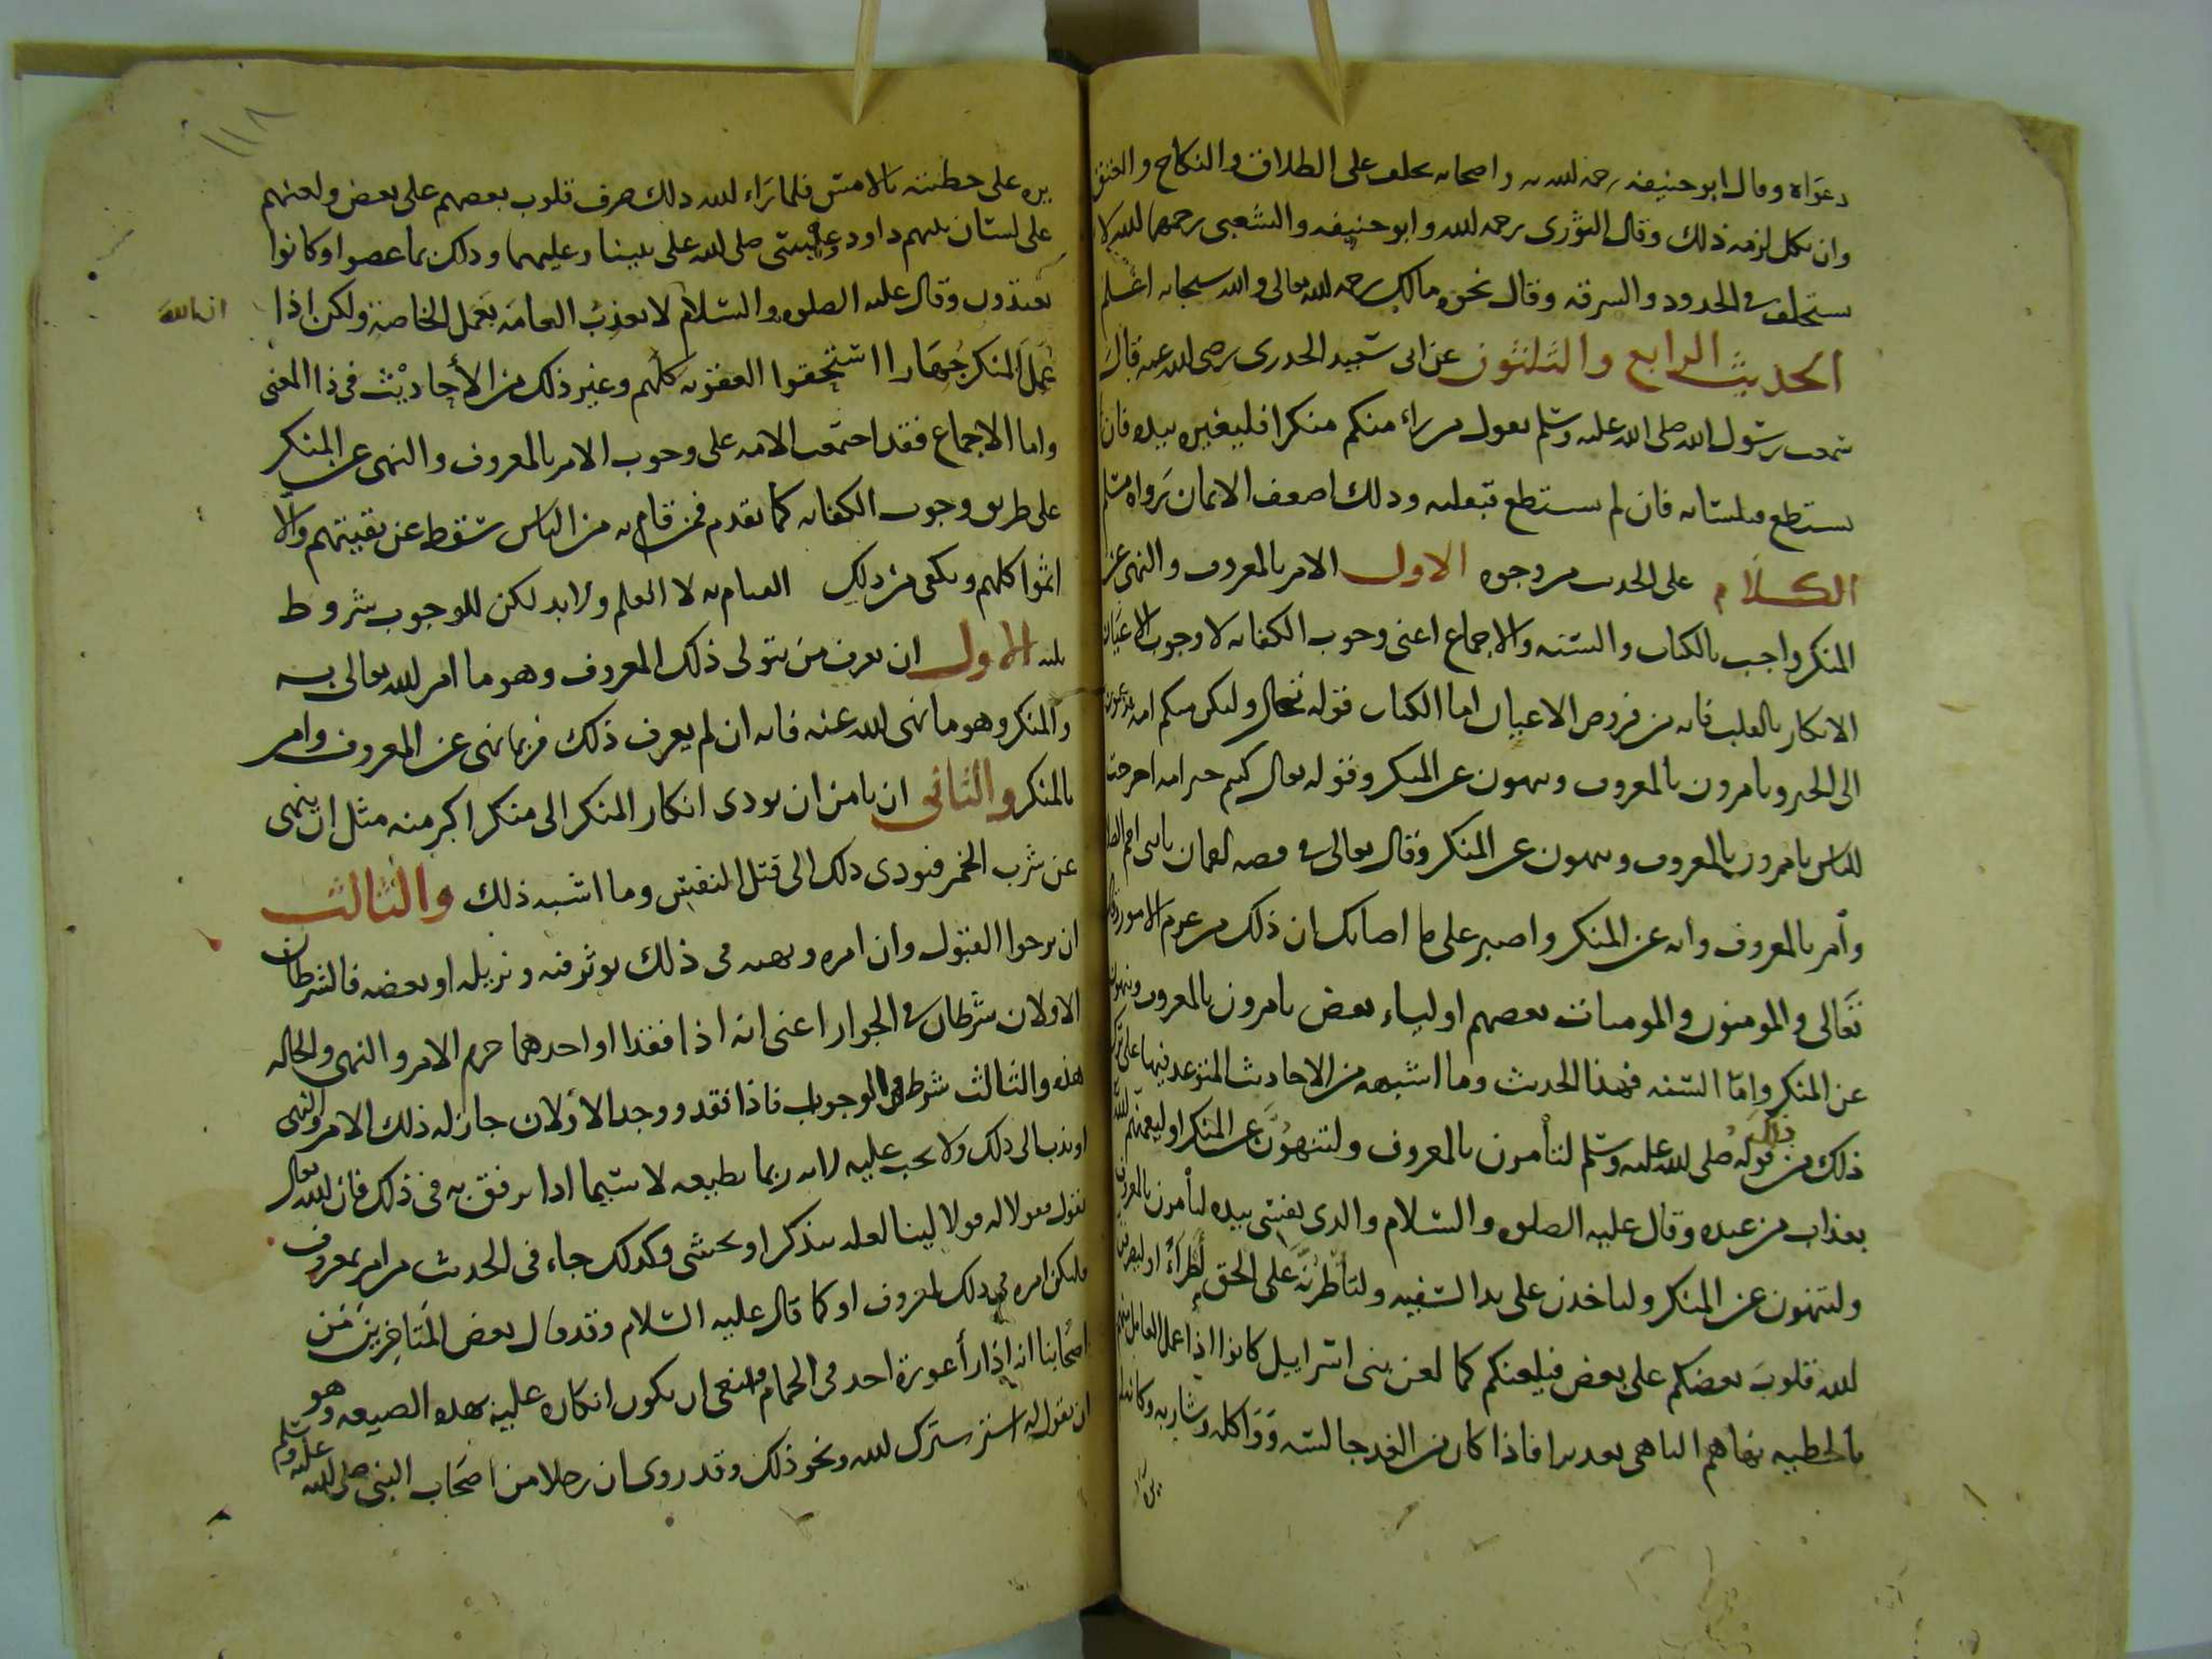 دعواه وقال ابو حنيفه رحمه الله واصحابه يحلف على الطلاق والنكاح والعتق
وان نكل لزمه ذلك وقال الثورى رحمه الله وابو حنيفه والشعبى رحمهما الله لا
يستحلف فى الحدود والسرقه وقال نحوه مالك رحمه الله تعالى والله سبحانه اعلم
الحديث الرابع والثلثون عن ابى سعيد الخدرى رضى الله عنه قال
سمعت رسول الله صلى الله عليه وسلم يقول من راى منكم منكرا فليغيره بيده فان لم
يستطع فبلسانه فان لم يستطع فبقلبه وذلك اضعف الايمان رواه مسلم
الكلام على الحديث من وجوه الاول الامر بالمعروف والنهى عن
المنكر واجب بالكتاب والسنه والاجماع اعنى وجوب الكفايه لا وجوب الاعيان
الانكار بالقلب فانه من فروض الاعيان اما الكتاب فقوله تعالى ولتكن منكم امه يدعون
الى الخير ويامرون بالمعروف وينهون عن المنكر وقوله تعالى كنتم خير امه اخرجت
للناس تامرون بالمعروف وتنهون عن المنكر وقال تعالى فى قصه لقمان يابنى اقم الصلا
وأمر بالمعروف وانه عن المنكر واصبر على ما اصابك ان ذلك من عزم الامور وقال
تعالى والمومنون والمومنات بعضهم اولياء بعض يامرون بالمعروف وينهون
عن المنكر واما السنه فهذا الحديث وما اشبهه من الاحاديث المتوعد فيها على ترك
ذلك من ذلك قوله صلى الله عليه وسلم لتأمرن بالمعروف ولتنهون عن المنكر او ليعمنكم الله
بعذاب من عنده وقال عليه الصلوه والسلام والذى نفسى بيده لتأمرن بالمعروف
ولتنهون عن المنكر ولتاخذن على يد السفيه ولتأطرنه على الحق أطراً او ليضربن
الله قلوب بعضكم على بعض فيلعنكم كما لعن بنى اسرايل كانوا اذا عمل العامل منهم
بالخطيه نهاهم الناهى تعذيرا فاذا كان من الغد جالسه وواكله وشاربه وكانه لم
يره
١١٨
يره على خطئته بالامس فلما راى الله ذلك صرف قلوب بعضهم على بعض ولعنهم
على لسان نبيهم داود وعيسى صلى الله على نبينا وعليهما وذلك بما عصوا وكانوا
يعتدون وقال عليه الصلوه والسلام لا يعذب العامه بعمل الخاصه ولكن اذا
ان الله
عمل المنكر جهارا استحقوا العقوبه كلهم وغير ذلك من الأحاديث فى ذا المعنى
واما الاجماع فقد اجتمعت الامه على وجوب الامر بالمعروف والنهى عن المنكر
على طريق وجوب الكفايه كما تقدم فمن قام به من الناس سقط عن بقيتهم والا
اثموا كلهم ويكفى من ذلك القيام به لا العلم ولابد لكن للوجوب شروط
ثلثه الاول ان يعرف من يتولى ذلك المعروف وهو ما امر الله تعالى به
والمنكر وهو ما نهى الله عنه فانه ان لم يعرف ذلك فربما نهى عن المعروف وامر
بالمنكر والثانى ان يامن ان يودى انكار المنكر الى منكر اكبر منه مثل ان ينهى
عن شرب الخمر فيودى ذلك الى قتل النفس وما اشبه ذلك والثالث
ان يرجوا القبول وان امره ونهيه فى ذلك يوثر فيه ويزيله او بعضه فالشرطان
الاولان شرطان فى الجواز اعنى انه اذا فقدا او احدهما حرم الامر والنهى والحاله
هذه والثالث شرط فى الوجوب فاذا فقد ووجد الاولان جاز له ذلك الامر والنهى
او ندب الى ذلك ولا يجب عليه لانه ربما يطيعه لاسيما اذا رفق به فى ذلك فان الله تعالى
يقول فقولا له قولا لينا لعله يتذكر او يخشى وكذلك جاء فى الحديث من امر بمعروف
فليكن امره فى ذلك بمعروف او كما قال عليه السلام وقد قال بعض المتاخرين من
اصحابنا انه اذا رأى عورة احد فى الحمام فينبغى ان يكون انكاره عليه بهذه الصيغه وهو
ان يقول له استر سترك الله ونحو ذلك وقد روى ان رجلا من اصحاب النبى صلى الله عليه وسلم